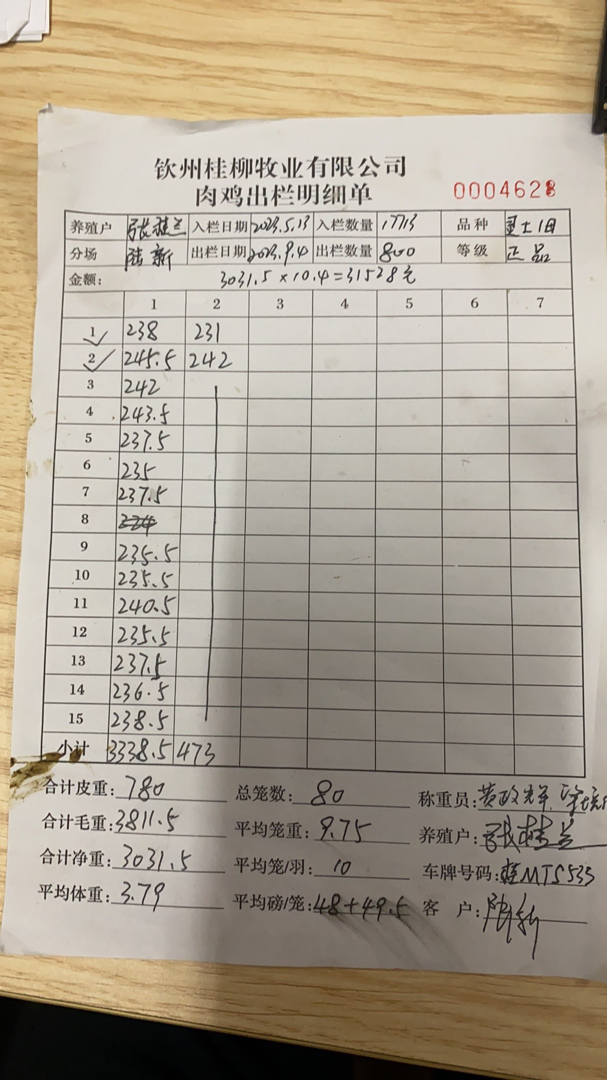 钦州桂柳牧业有限公司
肉鸡出栏明细单
0004628
养殖户 张桂兰 入栏日期 2023.5.13 入栏数量 17713 品种
分场 陆新 出栏日期 2023.9.4 出栏数量 800 等级 正品
金额: 3031.5×10.4=31528元
1 2 3 4 5 6 7
1 238 231
2 245.5 242
3 242
4 243.5
5 237.5
6 235
7 237.5
8 224
9 235.5
10 235.5
11 240.5
12 235.5
13 237.5
14 236.5
15 238.5
小计 3338.5 473
合计皮重: 780 总笼数: 80 称重员: 黄政
合计毛重: 3811.5 平均笼重: 9.75 养殖户: 张桂兰
合计净重: 3031.5 平均笼/羽: 10 车牌号码: 桂MTS535
平均体重: 3.79 平均磅/笼: 48+49.5 客 户: 陆新